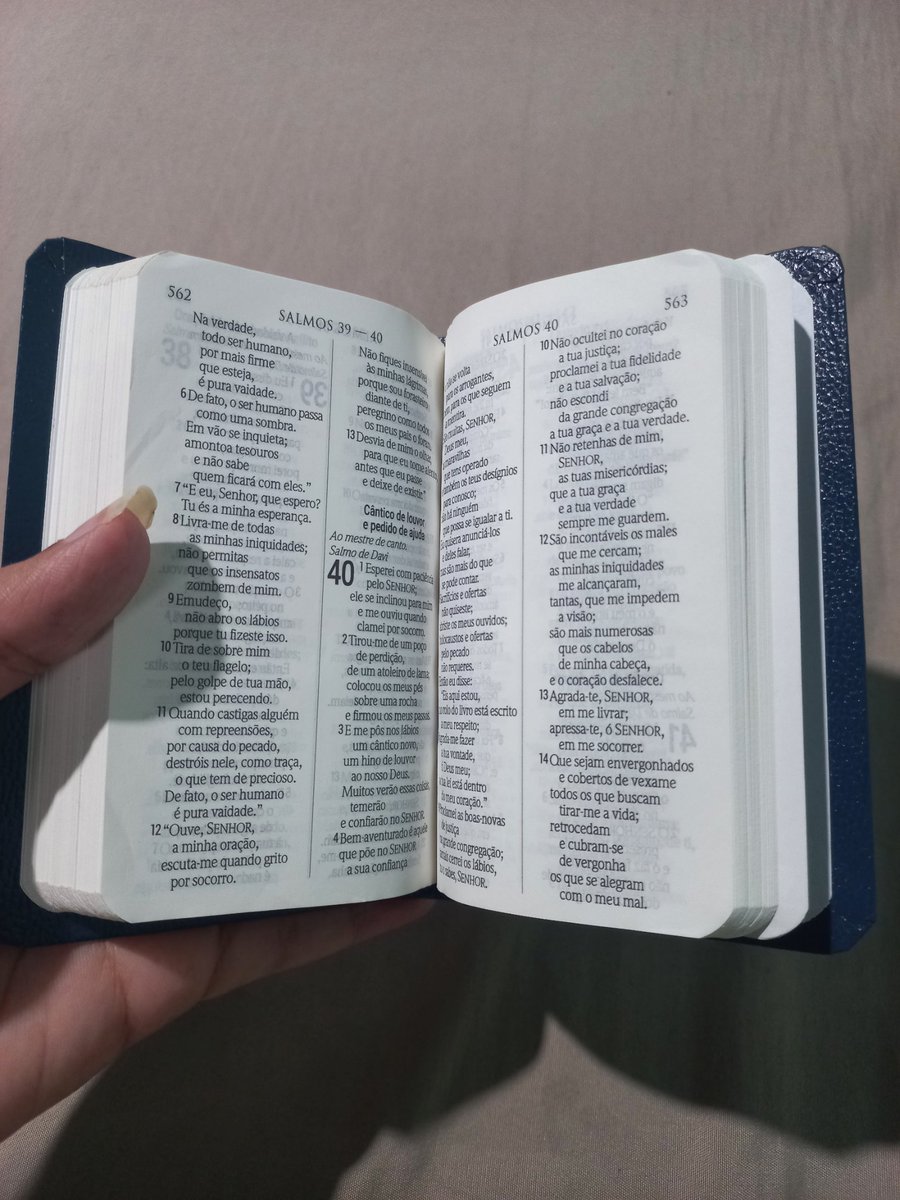 562
SALMOS 39 — 40
Na verdade,
todo ser humano,
por mais firme
que esteja,
é pura vaidade.
6 De fato, o ser humano passa
como uma sombra.
Em vão se inquieta;
amontoa tesouros
e não sabe
quem ficará com eles.”
7 “E eu, Senhor, que espero?
Tu és a minha esperança.
8 Livra-me de todas
as minhas iniquidades;
não permitas
que os insensatos
zombem de mim.
9 Emudeço,
não abro os lábios
porque tu fizeste isso.
10 Tira de sobre mim
o teu flagelo;
pelo golpe de tua mão,
estou perecendo.
11 Quando castigas alguém
com repreensões,
por causa do pecado,
destróis nele, como traça,
o que tem de precioso.
De fato, o ser humano
é pura vaidade.”
12 “Ouve, SENHOR,
a minha oração,
escuta-me quando grito
por socorro.
Não fiques insensível
às minhas lágrimas,
porque sou forasteiro
diante de ti,
peregrino como todos
os meus pais o foram.
13 Desvia de mim o olhar,
para que eu tome alento,
antes que eu passe
e deixe de existir.”
Cântico de louvor
e pedido de ajuda
Ao mestre de canto.
Salmo de Davi
40
1 Esperei com paciência
pelo SENHOR;
ele se inclinou para mim
e me ouviu quando
clamei por socorro.
2 Tirou-me de um poço
de perdição,
de um atoleiro de lama;
colocou os meus pés
sobre uma rocha
e firmou os meus passos.
3 E me pôs nos lábios
um cântico novo,
um hino de louvor
ao nosso Deus.
Muitos verão essas coisas,
temerão
e confiarão no SENHOR.
4 Bem-aventurado é aquele
que põe no SENHOR
a sua confiança
SALMOS 40
563
não se volta
para os arrogantes,
nem para os que seguem
a mentira.
SENHOR,
Deus meu,
maravilhas
que tens operado
também os teus desígnios
para conosco;
não há ninguém
que possa se igualar a ti.
quisera anunciá-los
e deles falar,
mas são mais do que
se pode contar.
Sacrifícios e ofertas
não quiseste;
abriste os meus ouvidos;
holocaustos e ofertas
pelo pecado
não requeres.
Então eu disse:
“Eis aqui estou,
no rolo do livro está escrito
a meu respeito;
agrada-me fazer
a tua vontade,
ó Deus meu;
a tua lei está dentro
do meu coração.”
Proclamei as boas-novas
de justiça
na grande congregação;
jamais cerrei os lábios,
tu o sabes, SENHOR.
10 Não ocultei no coração
a tua justiça;
proclamei a tua fidelidade
e a tua salvação;
não escondi
da grande congregação
a tua graça e a tua verdade.
11 Não retenhas de mim,
SENHOR,
as tuas misericórdias;
que a tua graça
e a tua verdade
sempre me guardem.
12 São incontáveis os males
que me cercam;
as minhas iniquidades
me alcançaram,
tantas, que me impedem
a visão;
são mais numerosas
que os cabelos
de minha cabeça,
e o coração desfalece.
13 Agrada-te, SENHOR,
em me livrar;
apressa-te, ó SENHOR,
em me socorrer.
14 Que sejam envergonhados
e cobertos de vexame
todos os que buscam
tirar-me a vida;
retrocedam
e cubram-se
de vergonha
os que se alegram
com o meu mal.